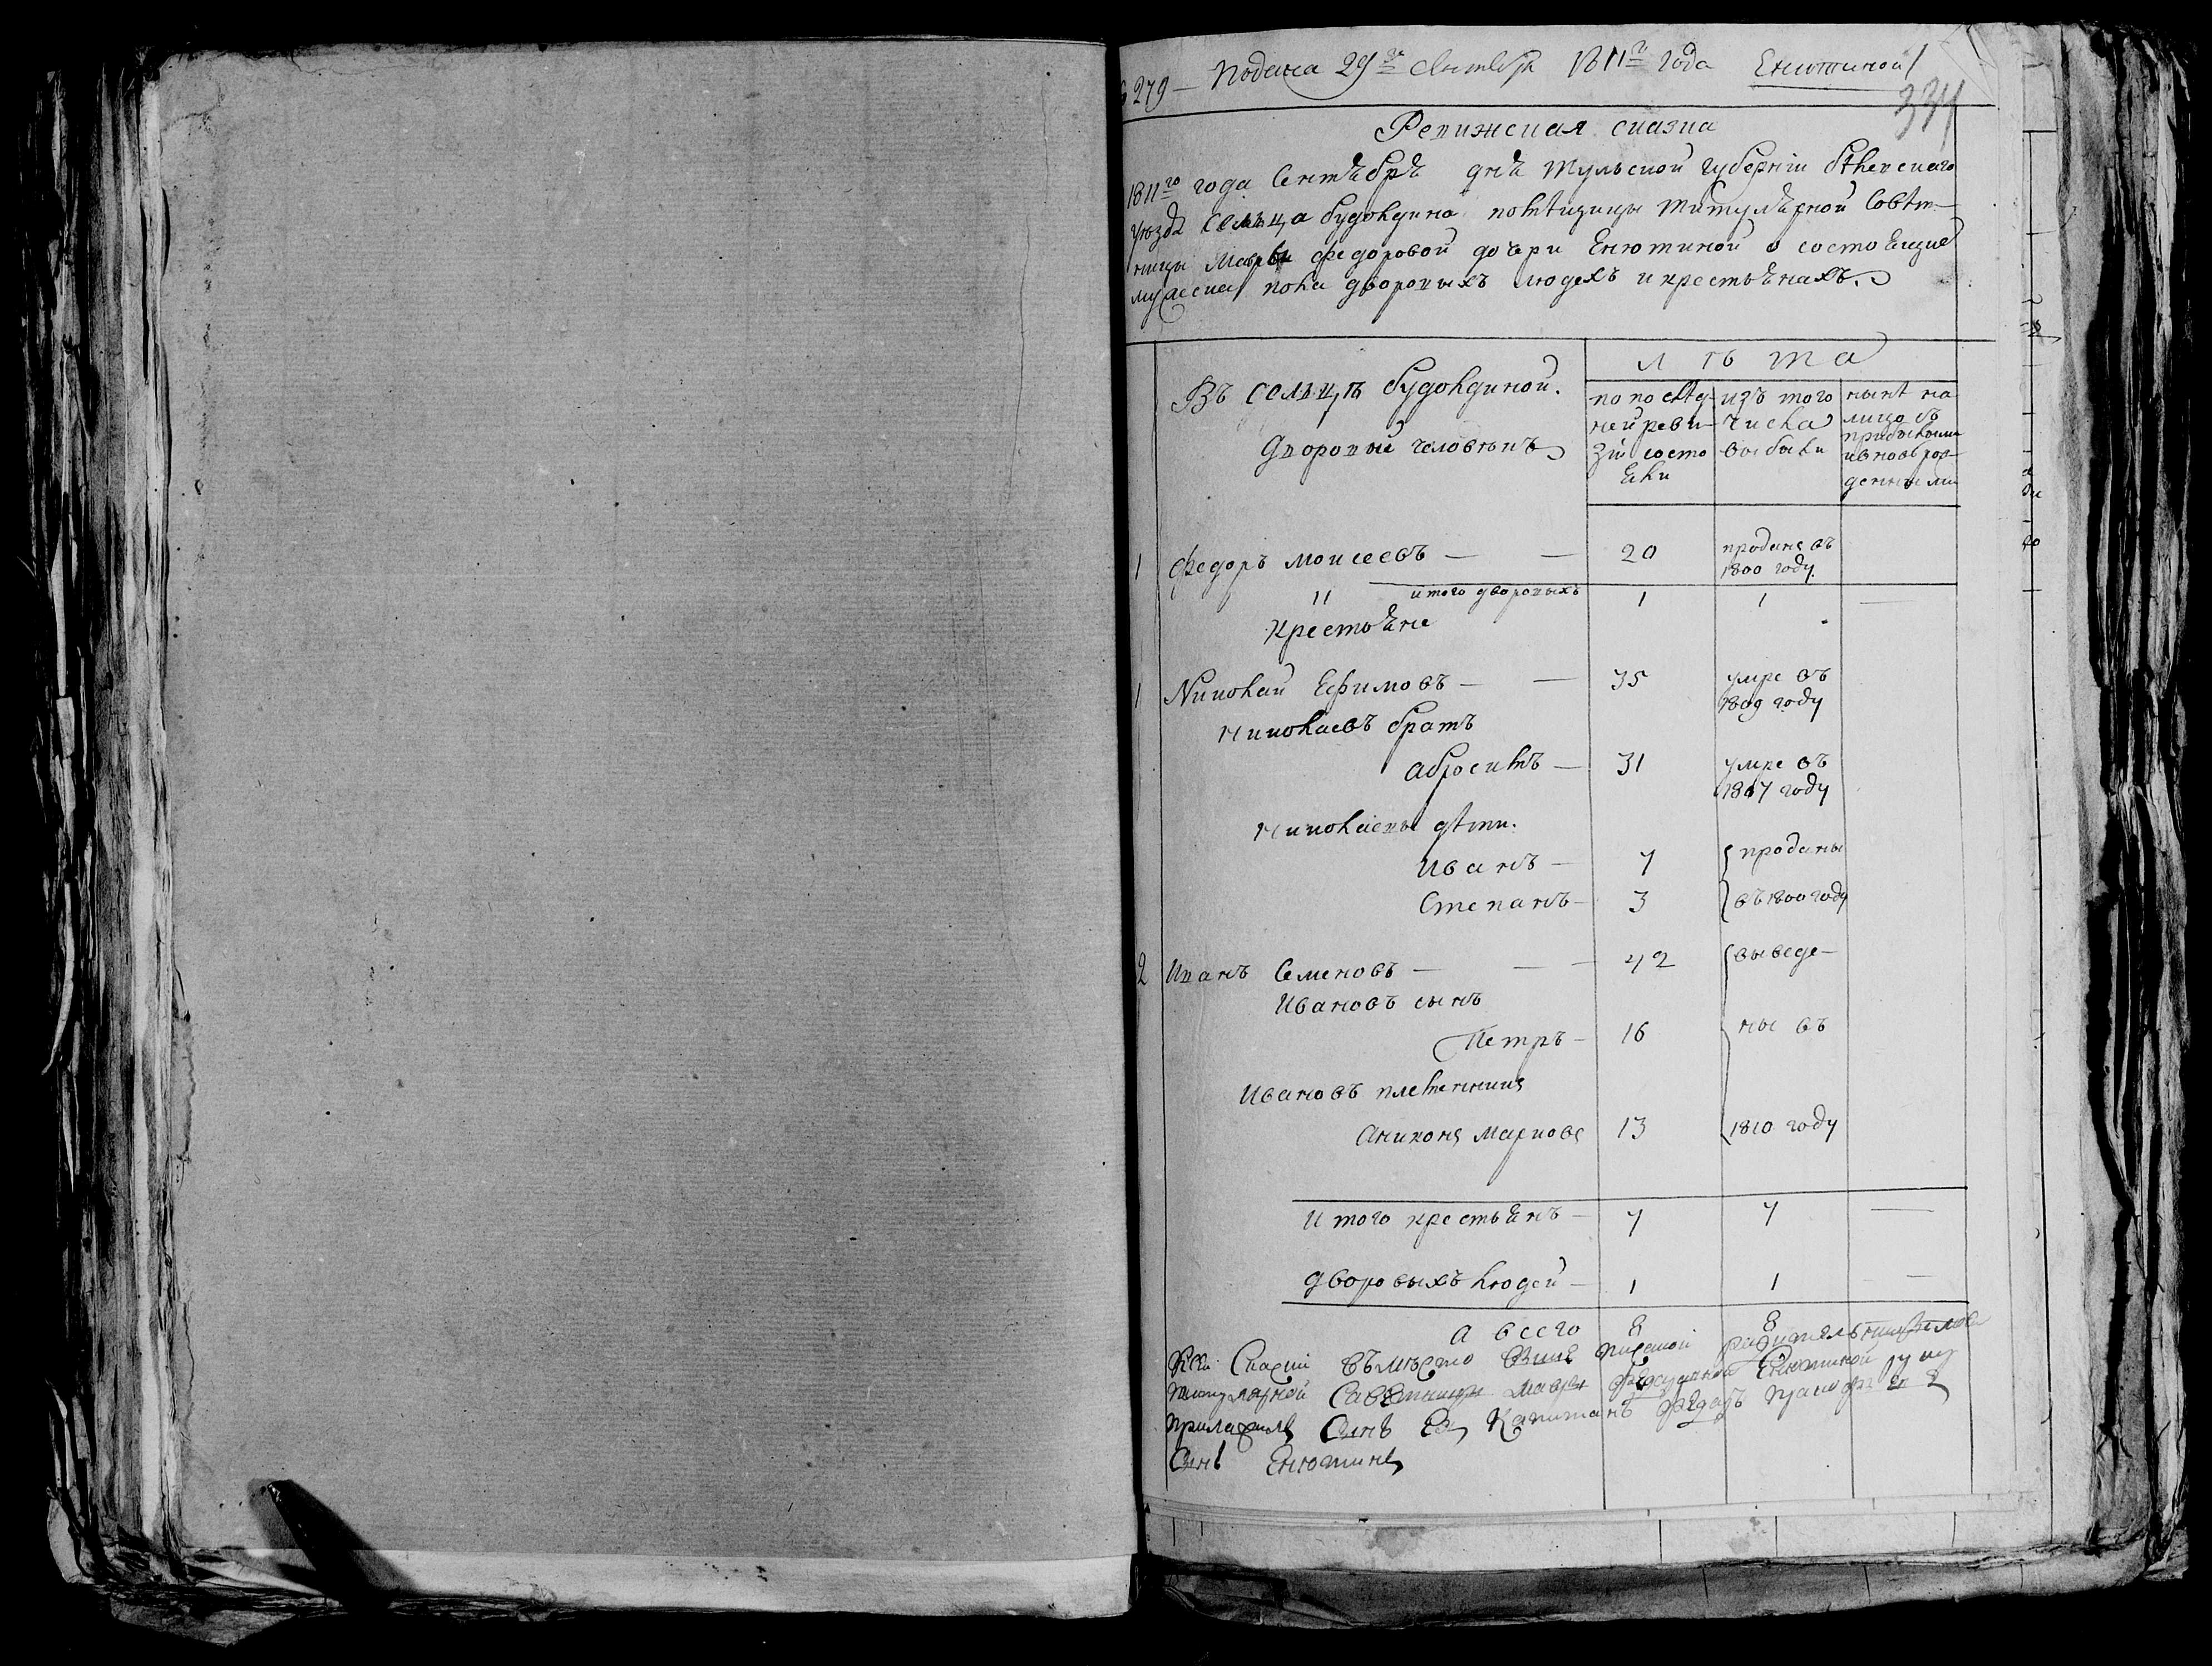 279 — Подана 29го Сентября 1811го года Енютиной
334
Ревижская сказка
1811го года Сентября дня Тульской губернии Бѣлевскаго
уѣзда Сельца будолдина помѣщицы титулярной Совѣт-
ницы Мавры федоровой дочери Енютиной о состоящихъ
мужеска пола дворовыхъ людехъ и крестьянахъ.
Въ сельцѣ будолдиной.
Дворовые человѣкъ
лѣта
по послѣд-
ней реви-
зіи состо
яли
изъ того
числа
выбыли
нынѣ на
лицо съ
прибылыми
и вновь рож-
денными
1 федоръ Моисеевъ — — 20 проданъ въ
1800 году.
11 итого дворовыхъ 1 1 —
Крестьяне
1 Николай Ефимовъ — — 35 умре въ
1809 году
Николаевъ братъ
абросимъ — 31 умре въ
1807 году
Николаевы дѣти.
Иванъ — 7 проданы
Степанъ — 3 въ 1800 году
2 Иванъ Семеновъ — — — 42 выведе-
Ивановъ сынъ
Петръ — 16 ны въ
Ивановъ племенникъ
Аниконъ Марковъ 13 1810 году
Итого крестьянъ — 7 7 —
дворовыхъ людей — 1 1 —
а всего 8 8
Къ Сей Скаски вѣмѣсто
титулярной Савѣтницы Мавры федоровной Енютиной руку
приложилъ Сынъ Ея Капитанъ федоръ
Сынъ Енютинъ